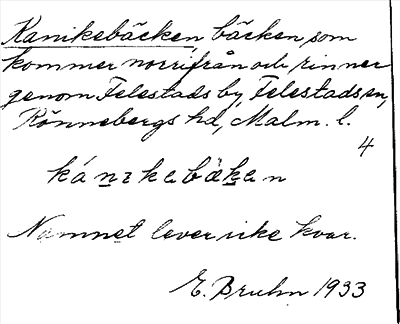 Kanikebäcken bäcken som
kommer norrifrån och rinner
genom Felestads by, Felestads sn,
Rönnebergs hd, Malm. l.
4
kánikebäken
Namnet lever icke kvar.
E. Bruhn 1933